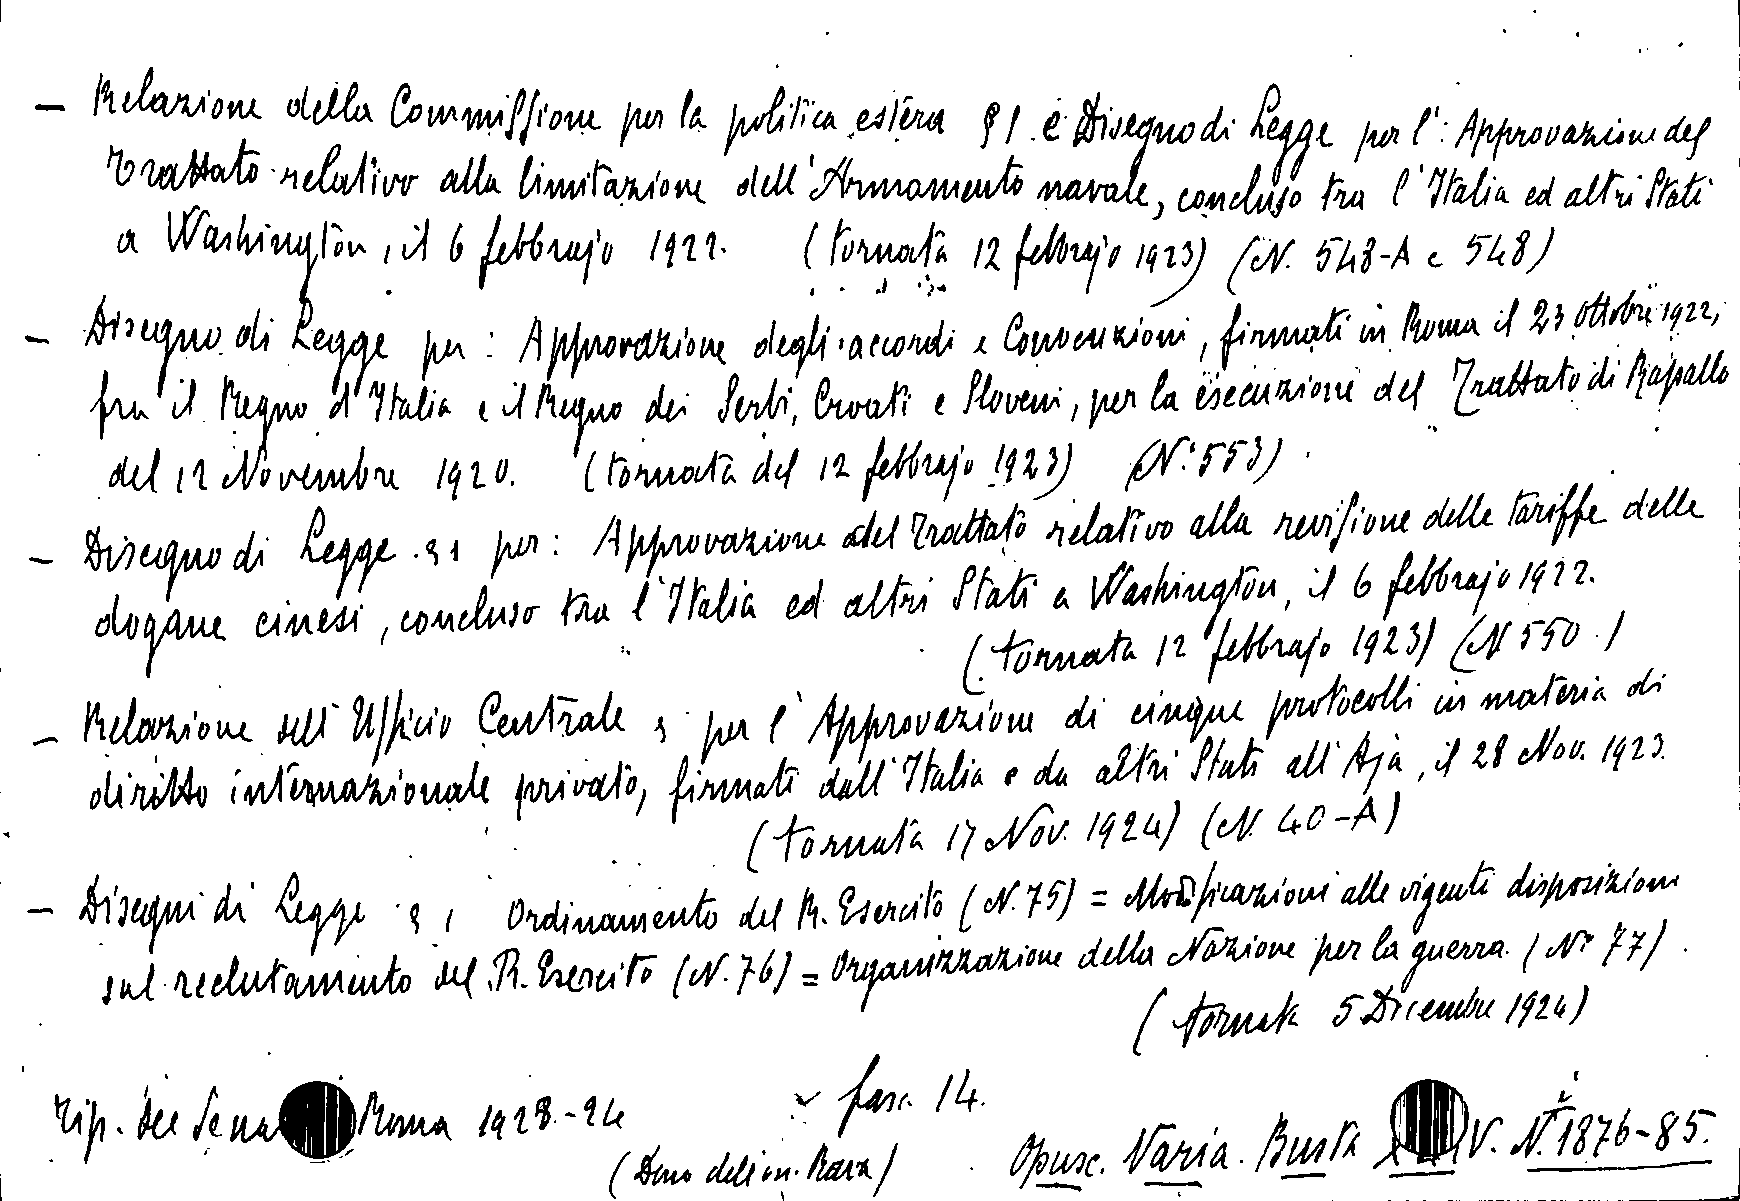 — Relazione della Commissione per la politica estera § 1 e Disegno di Legge per l': Approvazione del
Trattato relativo alla limitazione dell'Armamento navale, concluso tra l'Italia ed altri Stati
a Washington, il 6 febbrajo 1922. (tornata 12 febbrajo 1923) (N. 548-A e 548)
— Disegno di Legge per: Approvazione degli accordi e Convenzioni, firmati in Roma il 23 ottobre 1922,
fra il Regno d'Italia e il Regno dei Serbi, Croati e Sloveni, per la esecuzione del Trattato di Rapallo
del 12 Novembre 1920. (tornata del 12 febbrajo 1923) (N. 553)
— Disegno di Legge per: Approvazione del Trattato relativo alla revisione delle tariffe delle
dogane cinesi, concluso tra l'Italia ed altri Stati a Washington, il 6 febbrajo 1922.
(tornata 12 febbrajo 1923) (N 550.)
— Relazione dell'Ufficio Centrale per l'Approvazione di cinque protocolli in materia di
diritto internazionale privato, firmati dall'Italia e da altri Stati all'Aja, il 28 Nov. 1923.
(tornata 17 Nov. 1924) (N. 40-A)
— Disegni di Legge Ordinamento del R. Esercito (N. 75) = Modificazioni alle vigenti disposizioni
sul reclutamento del R. Esercito (N. 76) = Organizzazione della Nazione per la guerra. (N° 77).
(tornata 5 Dicembre 1924)
Tip. del Sena Roma 1923-24 fasc. 14.
(Dono dell'on. Rava) Opusc. Varia. Busta V. N. 1876-85.